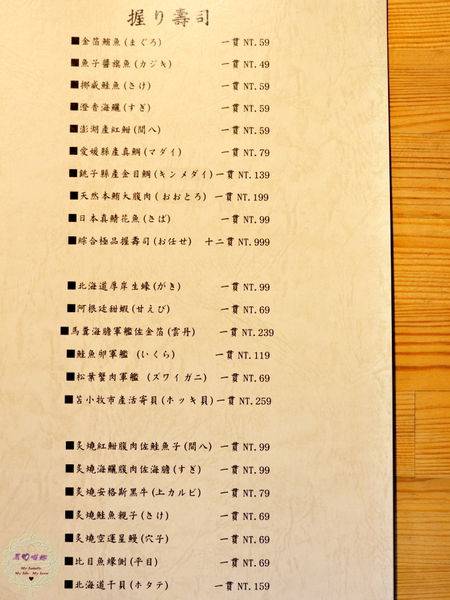 握り壽司
■金箔鮪魚(まぐろ) 一貫 NT.59
■魚子醬旗魚(カジキ) 一貫 NT.49
■挪威鮭魚(さけ) 一貫 NT.59
■澄香海鱺(すぎ) 一貫 NT.59
■澎湖產紅魽(間八) 一貫 NT.59
■愛媛縣產真鯛(マダイ) 一貫 NT.79
■銚子縣產金目鯛(キンメダイ) 一貫 NT.139
■天然本鮪大腹肉(おおとろ) 一貫 NT.199
■日本真鯖花魚(さば) 一貫 NT.99
■綜合極品握壽司(お任せ) 十二貫 NT.999
■北海道厚岸生蠔(がき) 一貫 NT.99
■阿根廷甜蝦(甘えび) 一貫 NT.69
■馬糞海膽軍艦佐金箔(雲丹) 一貫 NT.239
■鮭魚卵軍艦 (いくら) 一貫 NT.119
■松葉蟹肉軍艦 (ズワイガニ) 一貫 NT.69
■苫小牧市產活寄貝(ホッキ貝) 一貫 NT.259
■炙燒紅魽腹肉佐鮭魚子(間八) 一貫 NT.99
■炙燒海鱺腹肉佐海膽(すぎ) 一貫 NT.99
■炙燒安格斯黑牛(上カルビ) 一貫 NT.79
■炙燒鮭魚親子(さけ) 一貫 NT.69
■炙燒空運星鰻(穴子) 一貫 NT.69
■比目魚緣側(平目) 一貫 NT.69
■北海道干貝(ホタテ) 一貫 NT.159